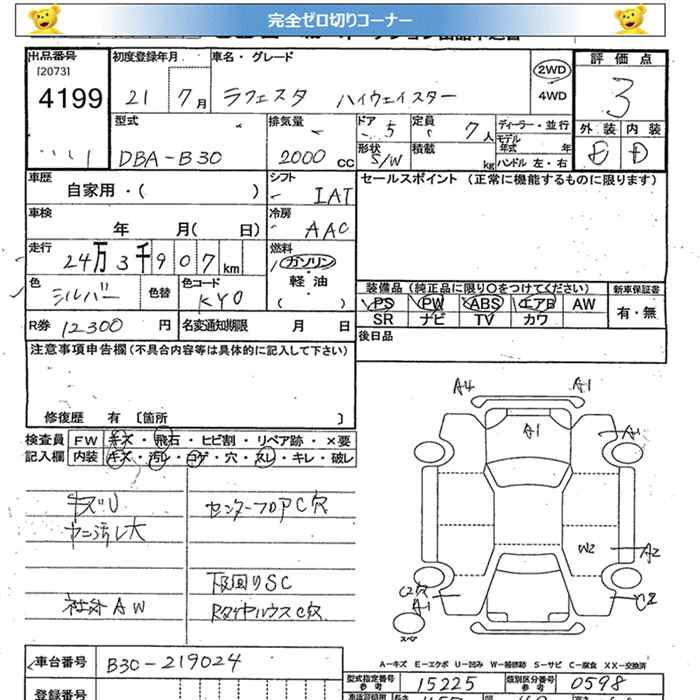 完全ゼロ切りコーナー
出品番号 初度登録年月 車名・グレード 評価点
[2073] 4199 21 7月 ラフェスタ ハイウェイスター 2WD 4WD 3
型式 排気量 ドア 5 定員 7人 ディーラー・並行 外装 内装
DBA-B30 2000cc 形状 S/W 積載 kg モデル年式 年 ハンドル 左・右 E D
車歴 シフト セールスポイント (正常に機能するものに限ります)
自家用・( ) IAT
車検 冷房
年 月( 日) AAC
走行 燃料
24万3千907km ガソリン
色 色替 色コード 軽油 装備品 (純正品に限り○をつけてください) 新車保証書
シルバー KY0 ( ) PS PW ABS エアB AW 有・無
R券 12300円 名変通知期限 月 日 SR ナビ TV カワ
注意事項申告欄(不具合内容等は具体的に記入して下さい) 後日品
修復歴 有 〔箇所 〕
検査員 FW キズ・飛石・ヒビ割・リペア跡・×要
記入欄 内装 キズ・汚レ・コゲ・穴・スレ・キレ・破レ
A4 A1
A1 A1
キズU センターフロアC穴
ヤニ汚レ大
W2 A2
下回りSC C2穴 A1 C2
社外AW RタイヤハウスC穴
スペア
A-キズ E-エクボ U-凹み W-補修跡 S-サビ C-腐食 XX-交換済
車台番号 B30-219024 型式指定番号 参考 15225 類別区分番号 参考 0598
登録番号